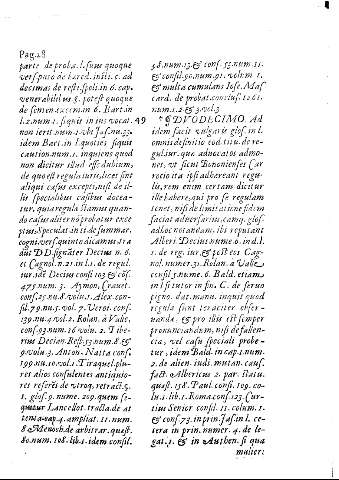 Pag. 28
parte de proba. l. suus quoque
vers. puto de hæred. instit. c. ad
decimas de resti. spoli. in 6. cap.
venerabilibus §. potest quoque
de senten. excom. in 6. Bart. in
l. 2. num. 1. si quis in ius vocat.
non ierit num. 1. vbi Jas. nu. 22.
idem Bart. in l. quoties si quis
caution. num. 1. inquiens quod
non dicitur illud esse dubium,
de quo est regula iuris, licet sint
aliqui casus excepti, nisi de il-
lis specialibus casibus docea-
tur, qui a regula stamus quan-
do casus alter nō probatur exce
ptus Speculat. in tit. de summar.
cogni. vers. quinto dicamus tra
dūt DD. signāter Decius n. 6.
et Cagnol. n. 21. in l. 1. de regul.
iur. idē Decius cons. 103 & cōs.
475. num. 3. Aymon, Crauet.
cons. 25. nu. 8. volu. 1. Alex. con-
sil. 79. nu. 5. vol. 7. Veroi. cons.
139. nu. 4. vol. 1. Rolan. à Valle,
cons. 93. num. 16 volu. 2. Tibe-
rius Decian. Resp. 13. num. 8. &
9. volu. 3. Anton. Natta cons.
199. nu. 10. vol. 1. Tiraquel. plu-
res alios consulentes antiquio-
res referēs de vtroq. retract. §.
1. glos. 9. nume. 209. quem se-
quitur Lancellot. tracta. de at
tenta. cap. 4. ampliat. 11. num.
8 Menoch. de arbitrar. quæst.
80. num. 108. lib. 1. idem consil.
58. num. 13. & cons. 55. num. 11.
& consil. 90. num. 91. volum. 1.
& multa cumulans Iose. Mas
card. de probat. conclus. 1261.
num. 1. 2. & 3. vol. 3
49 ¶ DVODECIMO. Ad
idem facit vulgaris glos. in l.
omnis definitio eod. titu. de re-
gul. iur. quæ aduocatos admo-
net, vt sicut Bononienses Car
rocio ita ipsi adhæreant regu-
lis, rem enim certam dicitur
ille habere, qui pro se regulam
tenet, nisi de limitatione eisdem
faciat aduersarius, eamq. glos.
ad hoc notandam, ibi reputant
Alberi. Decius nume. 6. in d. l.
1. de reg. iur. & post eos Cag-
nol. numer. 31. Rolan. a Valle,
consil. 5. nume. 6. Bald. etiam
in l. si tutor in fin. C. de seruo
pigno. dat. manu. inquit quod
regula sunt teraciter obser-
uandæ, & pro illis est semper
pronuntiandum, nisi de fallen-
cia, vel casu speciali probe-
tur, idem Bald. in cap. 1. num.
2. de alien. iudi. mutan. causa.
fact. Albertus 2. par. statu.
quæst. 158. Paul. cons. 109. vo-
lu. 1. lib. 1. Roma. cons. 123. Cur-
tius Senior consil. 11. colum. 1.
& cons. 73. in prin. Jas. in l. ce-
tera in prin. numer. 4. de le-
gat. 1. & in Authen. si qua
mulier: